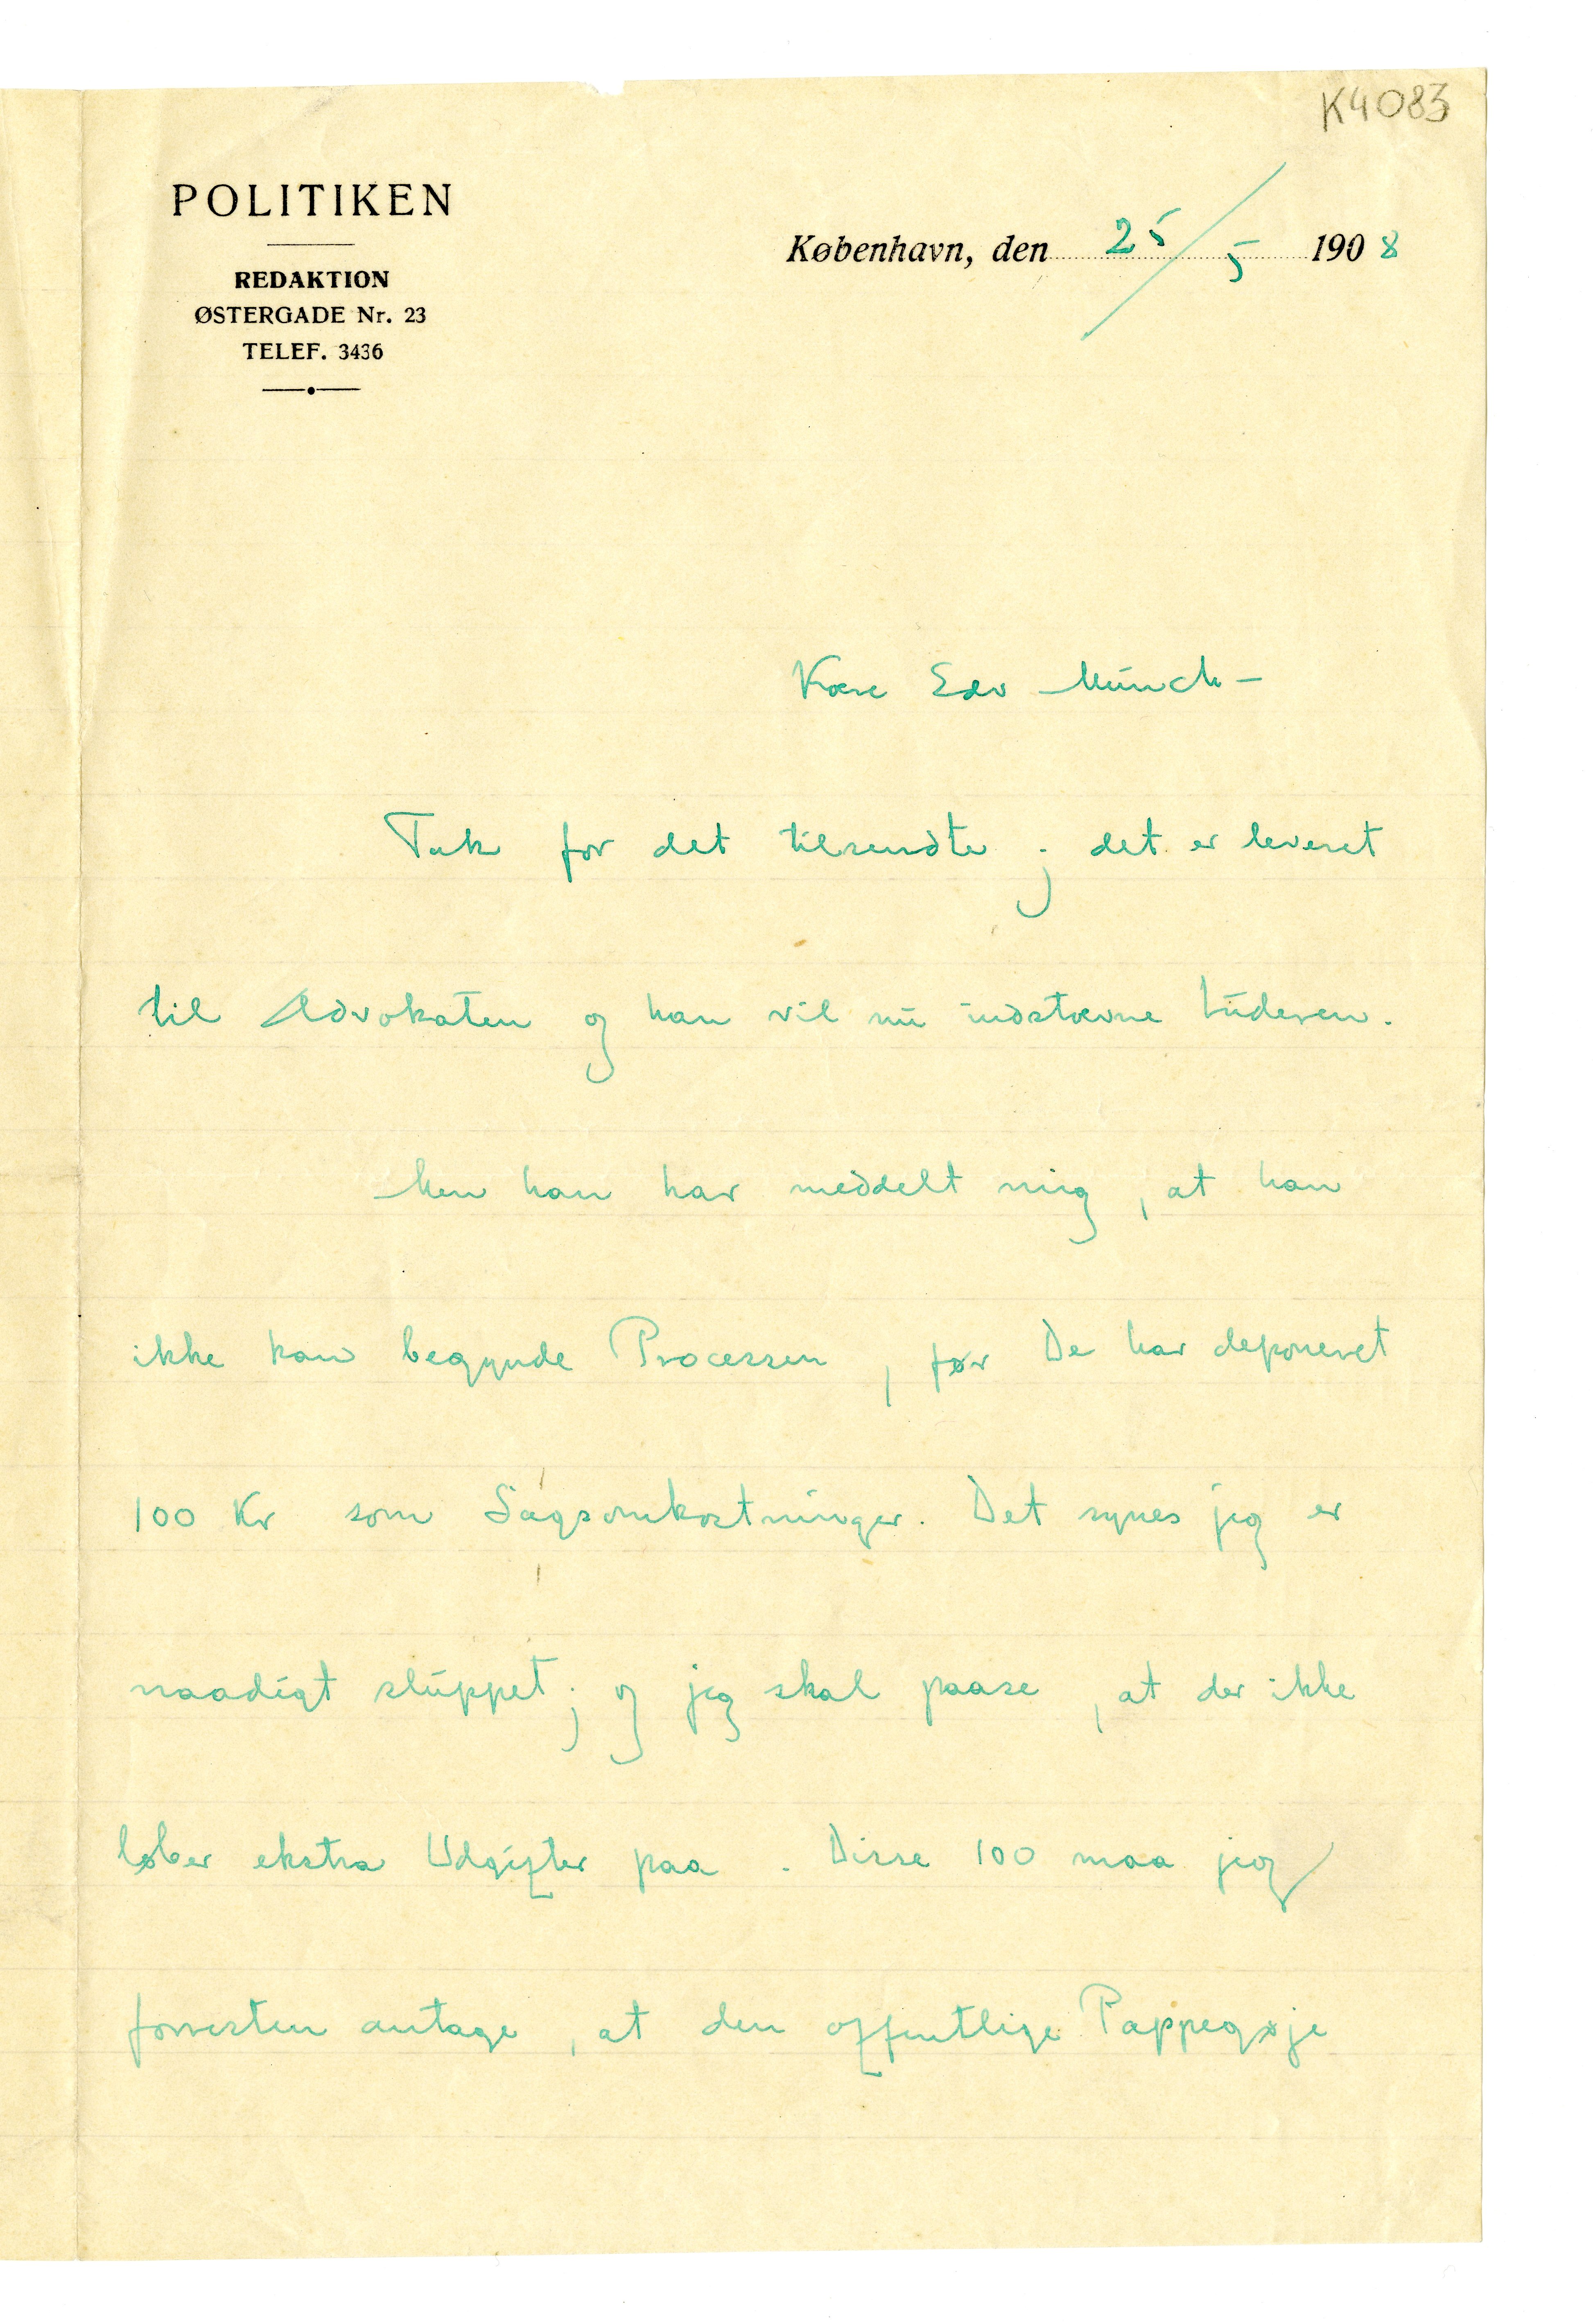 K4083
POLITIKEN
REDAKTION
ØSTERGADE Nr. 23
TELEF. 3436
København, den 25/5 1908
Kære Edv Munch –
Tak for det tilsendte ; det er leveret
til Advokaten og han vil nu indstævne Luderen.
Men han har meddelt mig , at han
ikke kan begynde Processen , før De har deponeret
100 Kr som Sagsomkostninger. Det synes jeg er
naadigt sluppet ; og jeg skal paase , at der ikke
løber ekstra Udgifter paa . Disse 100 maa jeg
forresten antage , at den offentlige Pappegøje